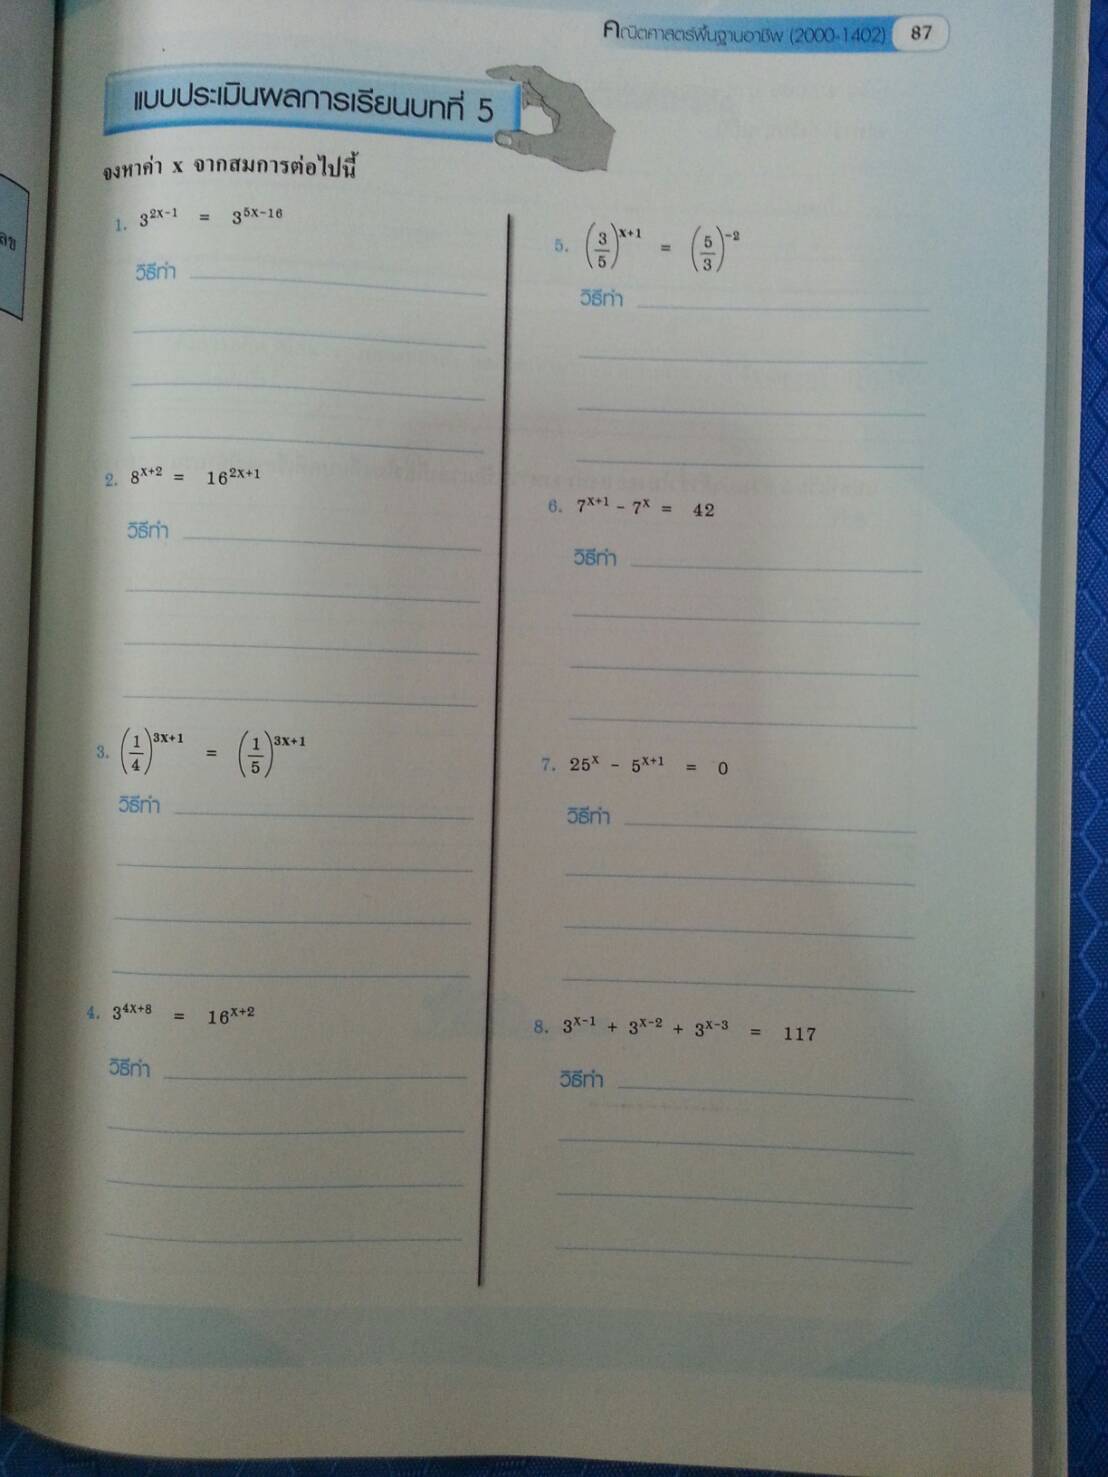 คณิตศาสตร์พื้นฐานอาชีพ (2000-1402) 87
แบบประเมินผลการเรียนบทที่ 5
จงหาค่า x จากสมการต่อไปนี้
1. 3^{2x-1} = 3^{5x-16}
วิธีทำ
2. 8^{x+2} = 16^{2x+1}
วิธีทำ
3. (1/4)^{3x+1} = (1/5)^{3x+1}
วิธีทำ
4. 3^{4x+8} = 16^{x+2}
วิธีทำ
5. (3/5)^{x+1} = (5/3)^{-2}
วิธีทำ
6. 7^{x+1} - 7^{x} = 42
วิธีทำ
7. 25^{x} - 5^{x+1} = 0
วิธีทำ
8. 3^{x-1} + 3^{x-2} + 3^{x-3} = 117
วิธีทำ